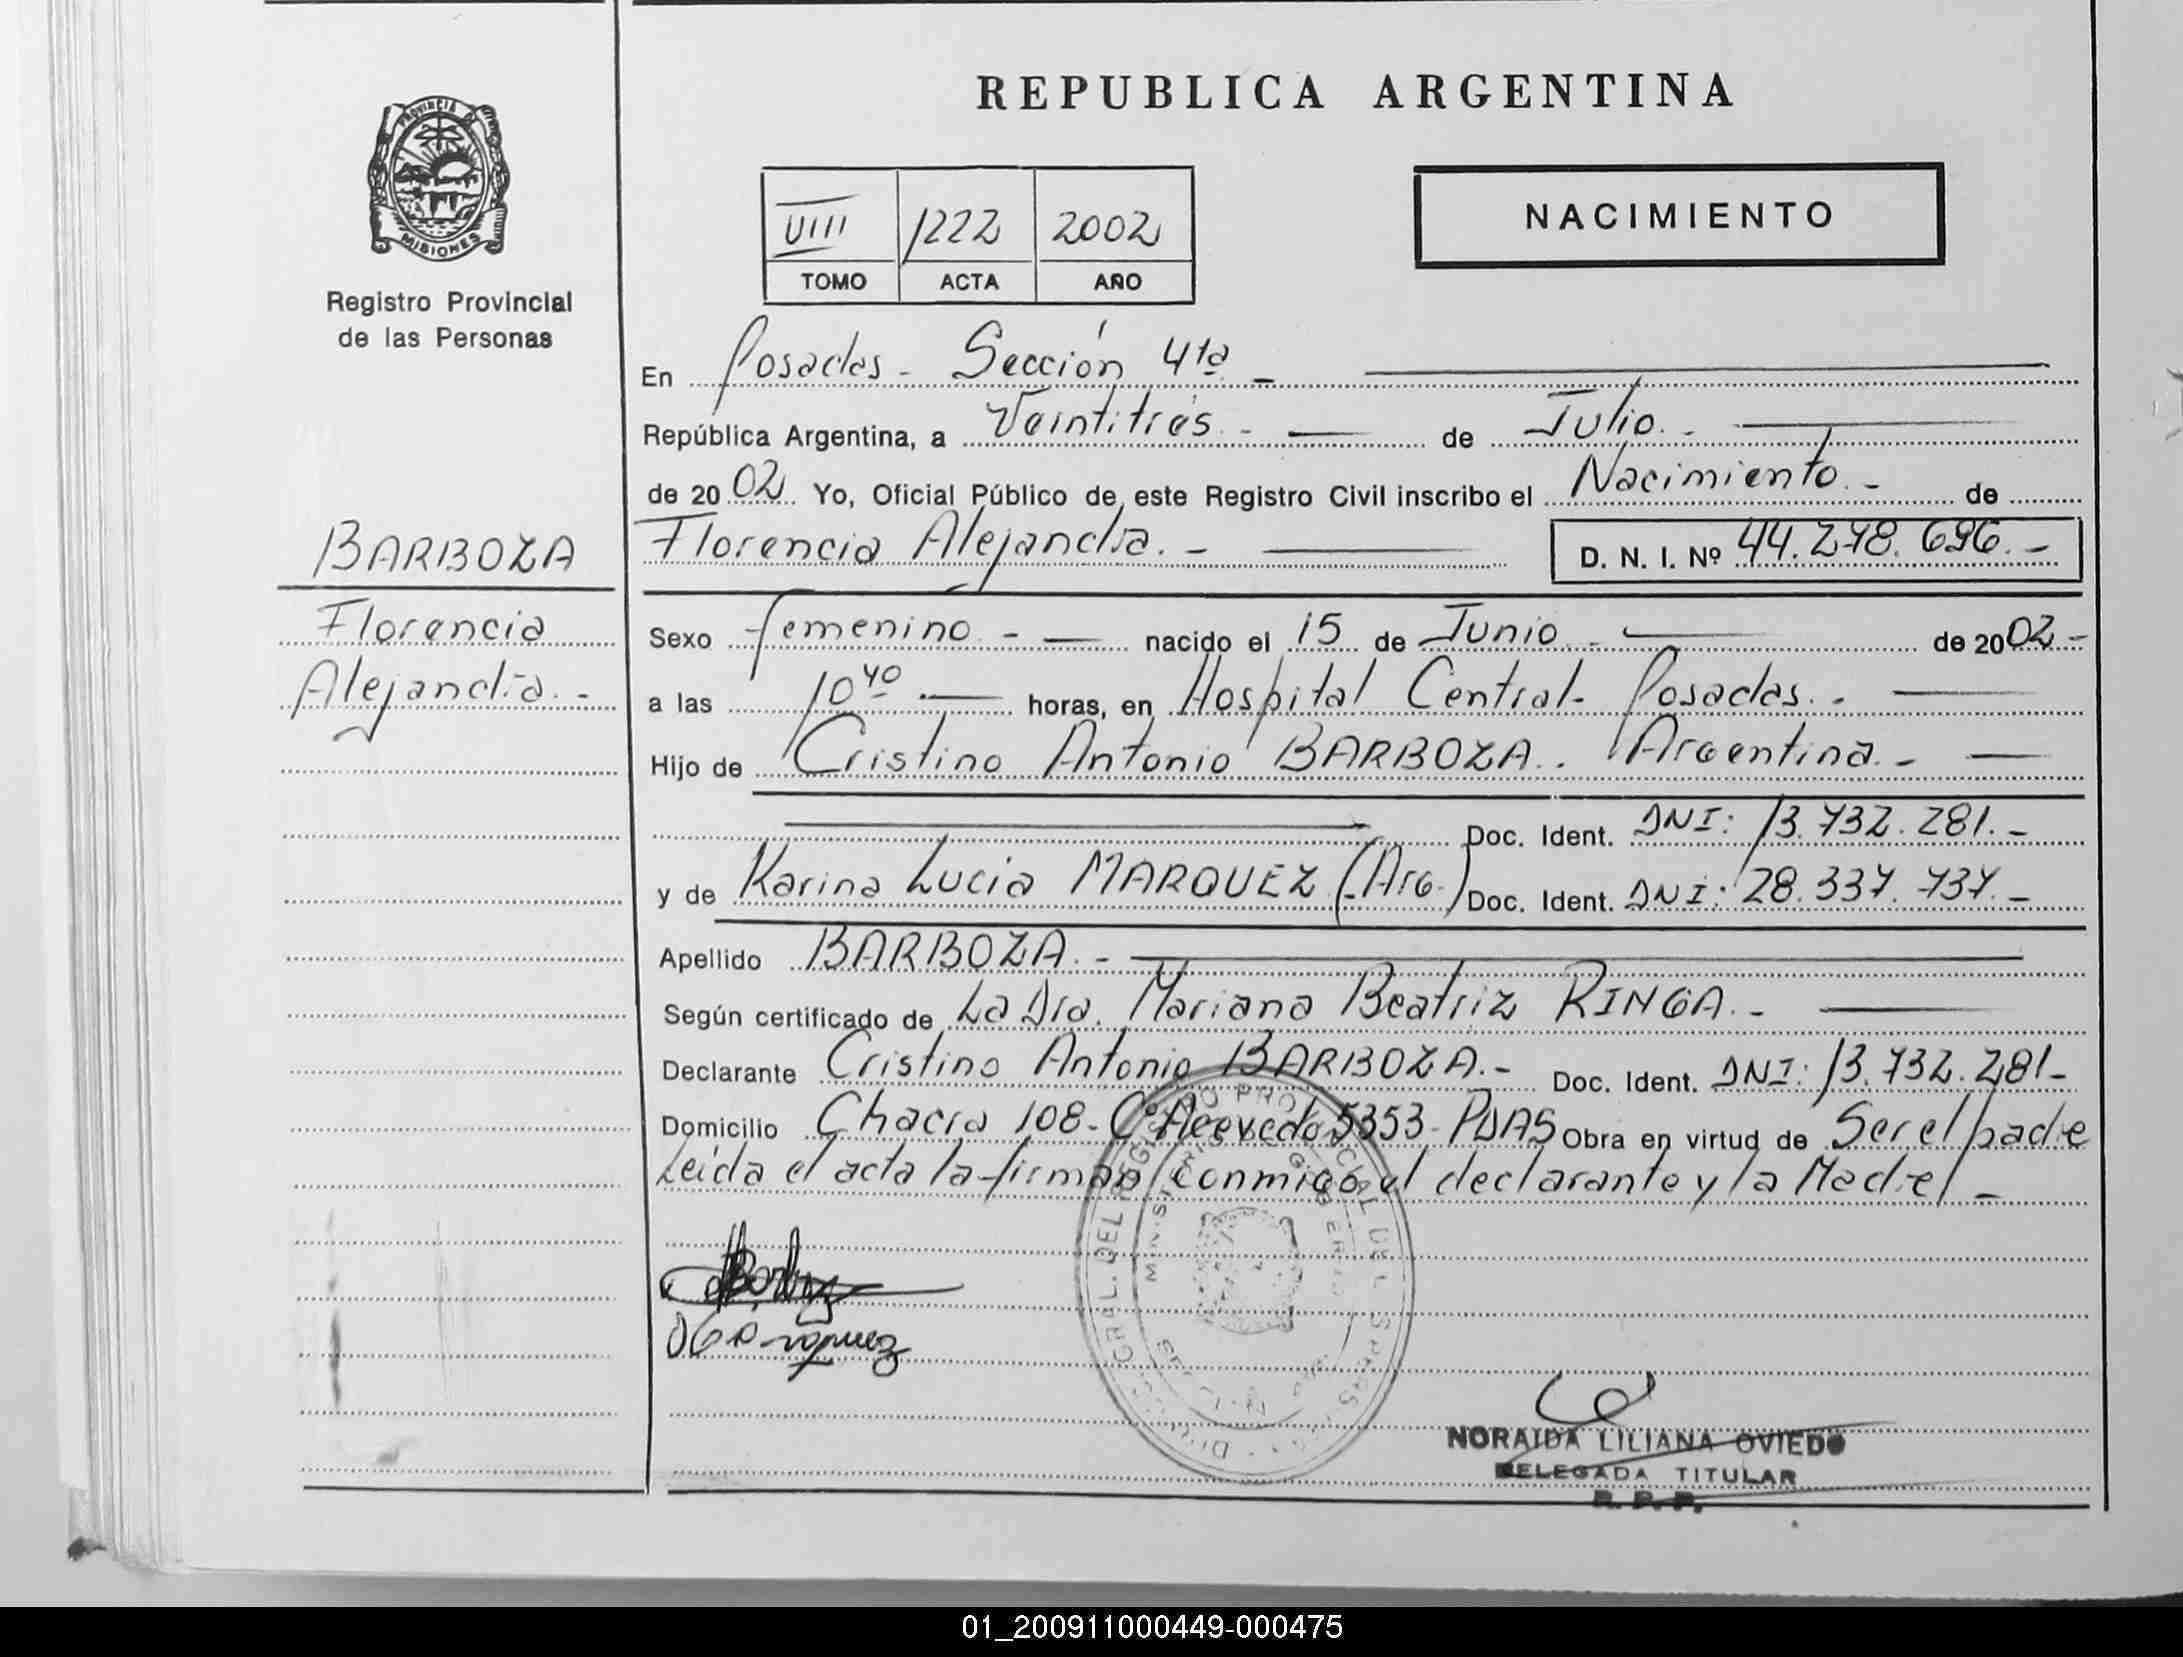 REPUBLICA ARGENTINA
PROVINCIA DE
MISIONES
Registro Provincial
de las Personas
VIII 1222 2002
TOMO ACTA AÑO
NACIMIENTO
En Posadas - Sección 4ta -
República Argentina, a Veintitrés.- de Julio.-
de 2002 Yo, Oficial Público de este Registro Civil inscribo el Nacimiento.- de
Florencia Alejandra.- D. N. I. Nº 44.278.696.-
BARBOZA
Florencia
Alejandra.-
Sexo femenino.- nacido el 15 de Junio.- de 2002-
a las 10 40 horas, en Hospital Central- Posadas.-
Hijo de Cristino Antonio BARBOZA.. Argentina.-
Doc. Ident. DNI: 13.732.281.-
y de Karina Lucia MARQUEZ (Arg.) Doc. Ident. DNI: 28.337.737.-
Apellido BARBOZA.-
Según certificado de La Dra. Mariana Beatriz RINGA.-
Declarante Cristino Antonio BARBOZA.- Doc. Ident. DNI: 13.732.281-
Domicilio Chacra 108- Cº Acevedo 5353- PDAS Obra en virtud de Ser el padre
Leida el acta la firman conmigo el declarante y la Madre/-
NORAIDA LILIANA OVIEDO
DELEGADA TITULAR
R. P. P.
01_200911000449-000475